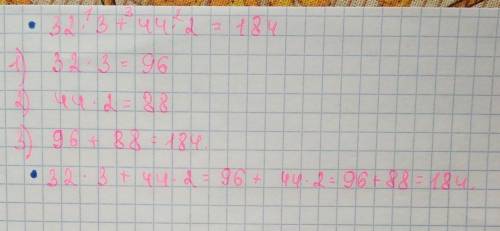 • 32 ·¹ 3 +³ 44 ·² 2 = 184
1) 32 · 3 = 96
2) 44 · 2 = 88
3) 96 + 88 = 184.
• 32 · 3 + 44 · 2 = 96 + 44 · 2 = 96 + 88 = 184.